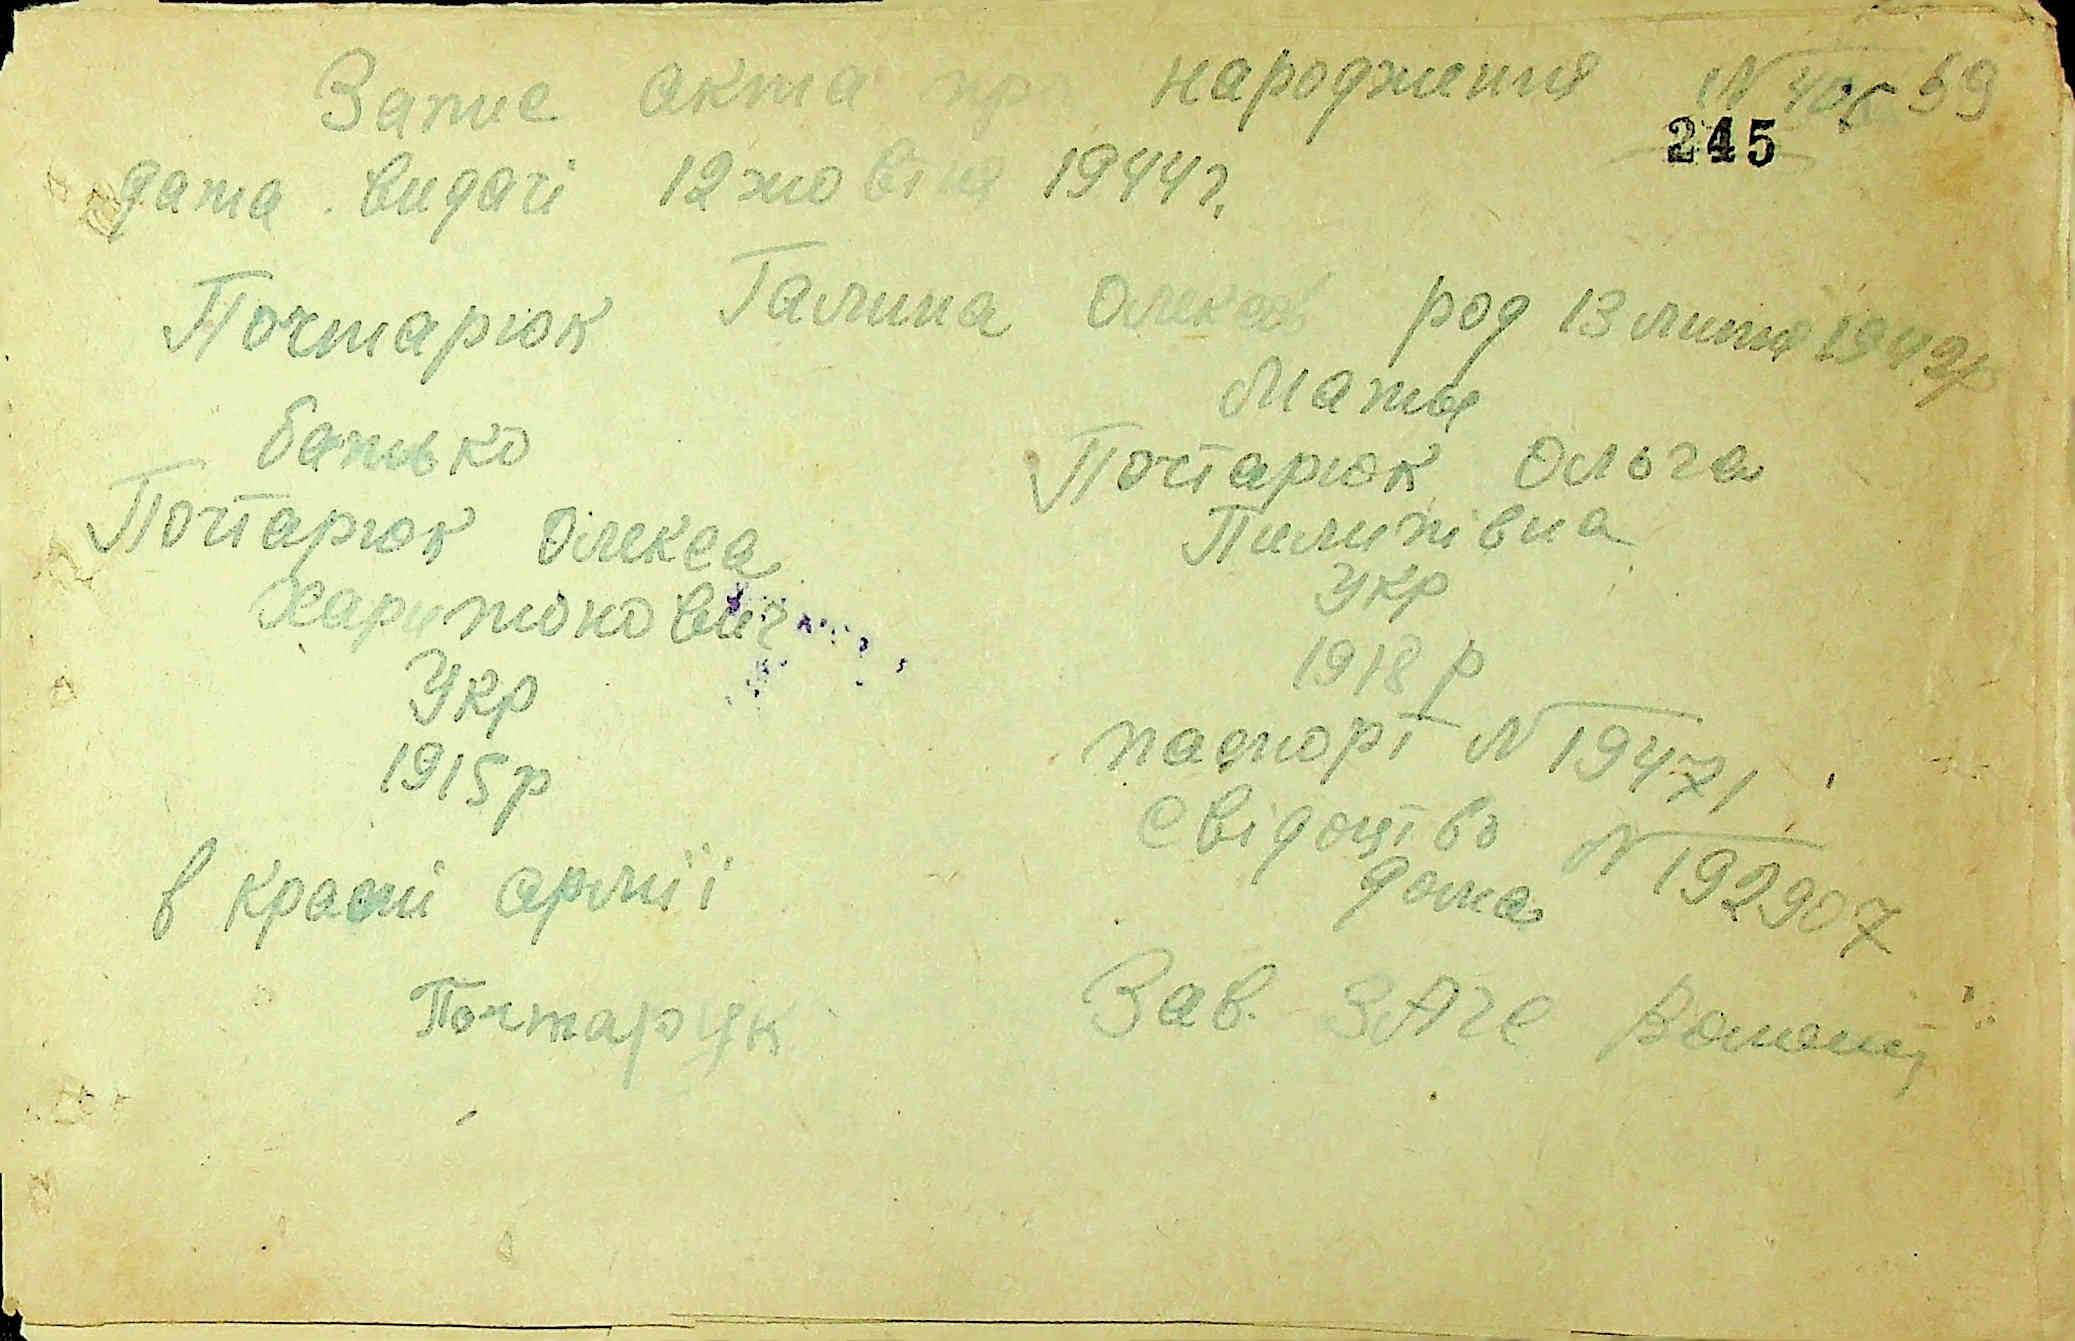 Запис акта про народження № 59
245
дата видачі 12 жовтня 1944 г.
Почтарюк Галина Олекс род 13 лютя 1942р
батько
Почтарюк Олекса
Харитонович
Укр
1915р
в красні армії
Почтарук
Мати
Почтарюк Ольга
Пилипівна
Укр
1918 р
паспорт № 19471
свідоцтво № 192907
дома
Зав. ЗАГС